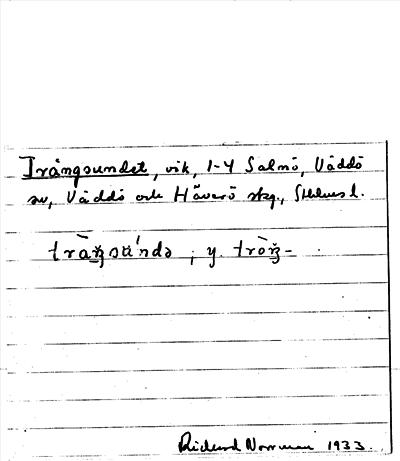 Trångsundet, vik, 1-4 Salnö, Väddö
sn, Väddö och Häverö skg., Sthlms l.
tràŋsu̇́ndə ; y. tròŋ-
Rickard Norrman 1933.